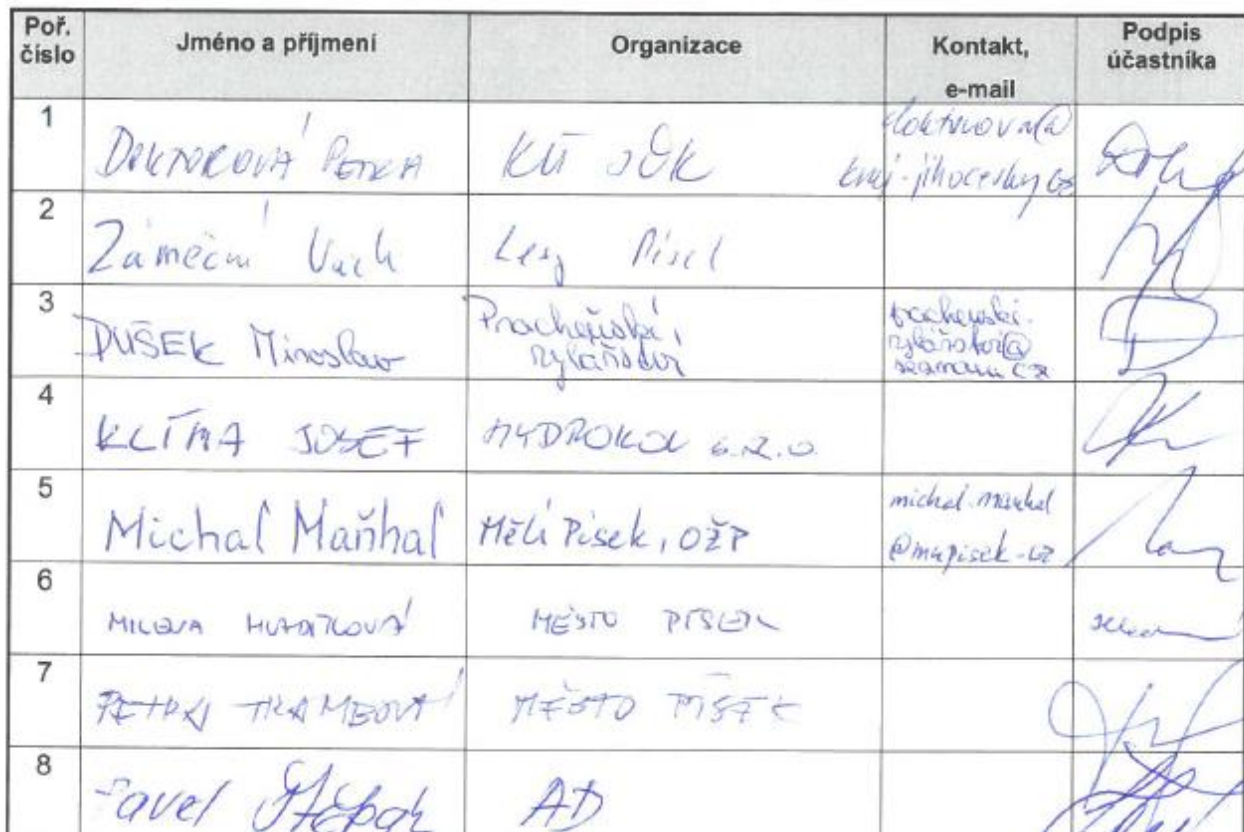 Poř. číslo Jméno a příjmení Organizace Kontakt, e-mail Podpis účastníka
1 DOKTOROVÁ PETRA KÚ JČK doktorova@
kraj-jihocesky.cz
2 Lesy Písek
3 DUŠEK Miroslav Prácheňské rybářství
4 KLÍMA JOSEF HYDROKOV s.r.o.
5 Michal Maňhal MěÚ Písek, OŽP michal.manhal
@mupisek.cz
6 MILENA MĚSTO PÍSEK
7 PETRA TRAMBOVÁ MĚSTO PÍSEK
8 Pavel Štěpán AD